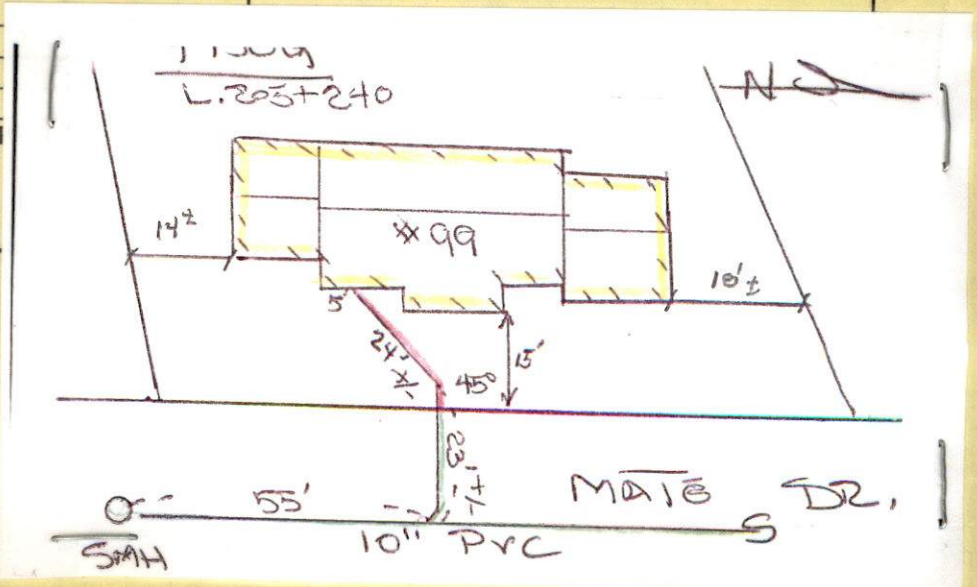 L.205+240
N
14'±
# 99
10'±
5'
24' +/-
45°
15'
23' +/-
55'
DR.
SMH
10" PVC
S